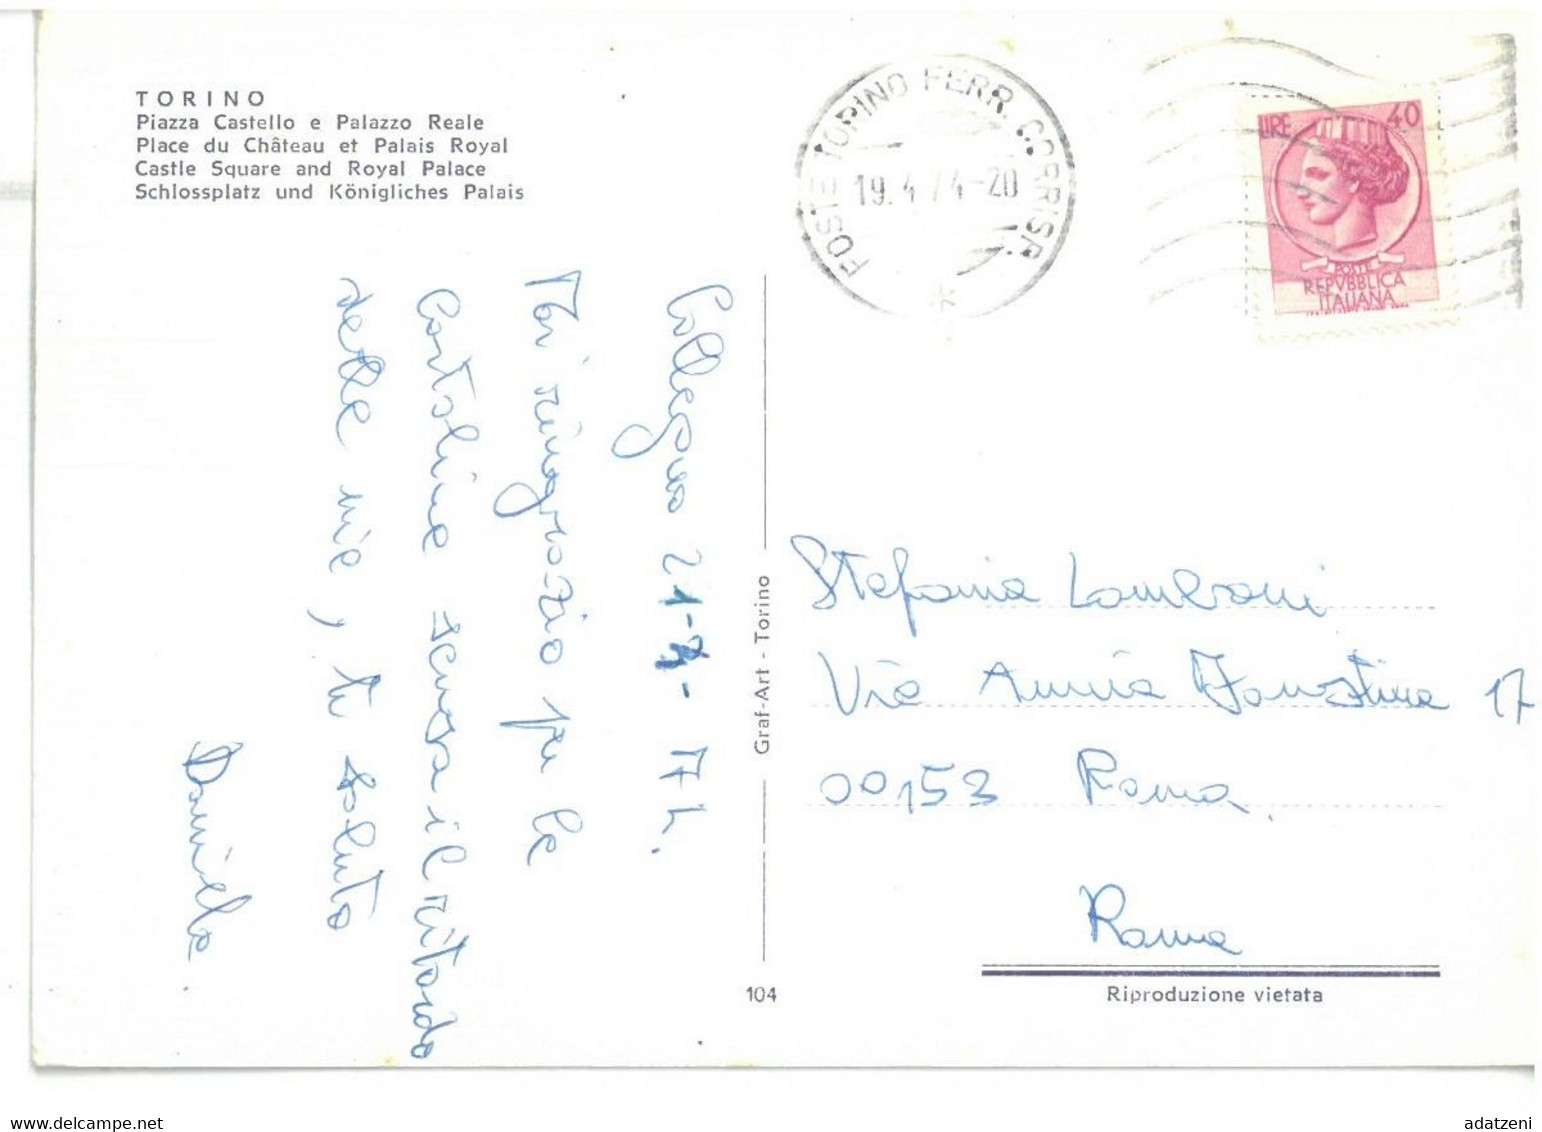 TORINO
Piazza Castello e Palazzo Reale
Place du Château et Palais Royal
Castle Square and Royal Palace
Schlossplatz und Königliches Palais
POSTE TORINO FERR. CORRISP.
19.4 74-20
LIRE 40
POSTE
REPVBBLICA
ITALIANA
Collegno 21-
Ti ringrazio per le
cartoline scusa il ritardo
delle mie, ti saluto
Daniele
Graf-Art - Torino
104
Stefania Lombroni
Via Annia Faustina 17
00153 Roma
Roma
Riproduzione vietata
www.delcampe.net
adatzeni